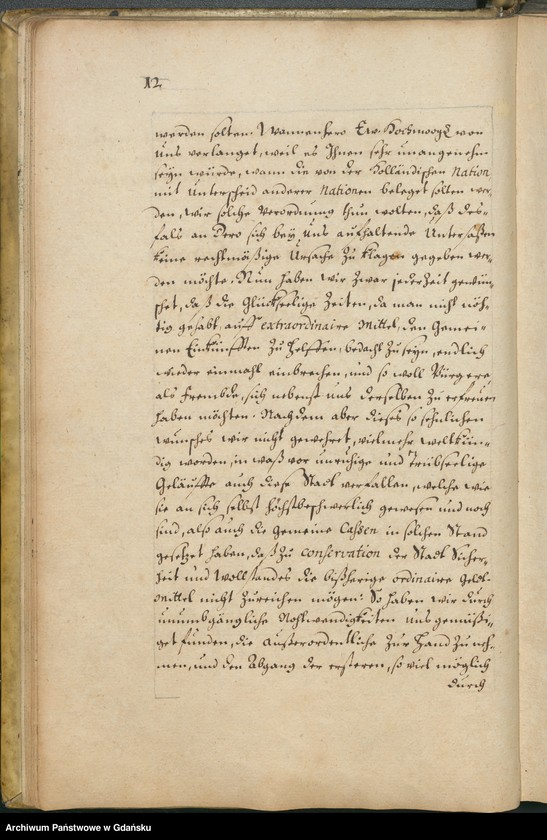 12
werden solten. Wannenhero Ew. Hochmög. von
uns verlanget, weil es Ihnen sehr unangenehm
seyn würde, wann die von der Holländischen Nation
mit Unterscheid anderer Nationen beleget solten wer-
den, wir solche Verordnung thun wolten, daß des-
fals an Dero sich bey uns aufhaltende Untersaßen
keine rechtmäßige Ursache zu klagen gegeben wer-
den möchte. Nun haben wir zwar jederzeit gewün-
schet, daß die Glückseelige Zeiten, da man nicht nöh-
tig gehabt, auff extraordinaire Mittel, den Gemei-
nen Einkünfften zu helffen, bedacht zu seyn, endlich
wieder einmahl einbrechen, und so woll Bürgere
als Frembde, sich nebenst uns derselben zu erfreuen
haben möchten. Nachdem aber dieses so sehnlichen
wunsches wir nicht gewehret, vielmehr weltkün-
dig worden, in waß vor unruhige und trübseelige
Geläuffte auch diese Stadt verfallen, welche wie
sie an sich selbst höchstbeschwerlich gewesen und noch
sind, also auch die Gemeine Cassen in solchen Stand
gesetzet haben, daß zu conservation der Stadt Sicher-
heit und Wollstandes die bißherige ordinaire Geldt-
Mittel nicht zureichen mögen: So haben wir durch
unumbgängliche Nohtwendigkeiten uns gemüßi-
get funden, die Außerordentliche zur Hand zu neh-
men, und den Abgang der ersteren, so viel möglich
durch
Archiwum Państwowe w Gdańsku